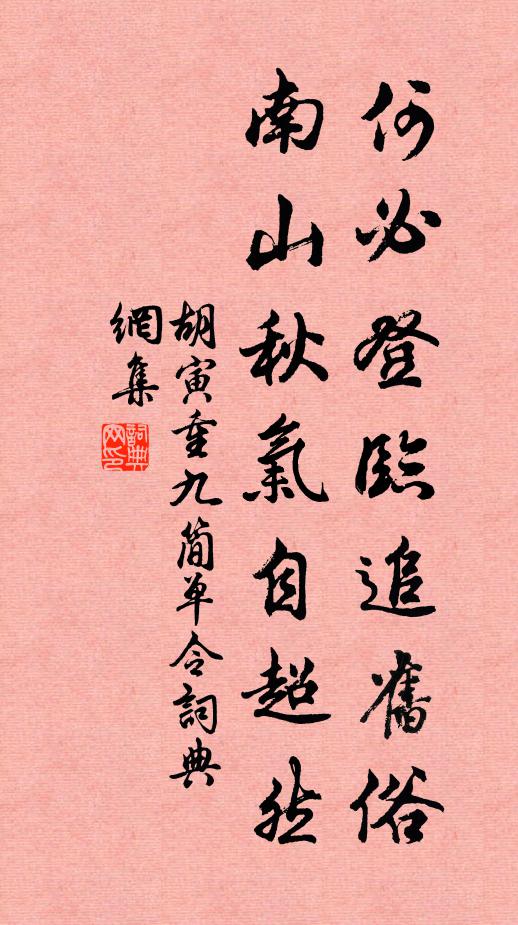 何必登臨追舊俗
南山秋氣自超然
胡寅重九簡單令詞典
網集
詞典
网印